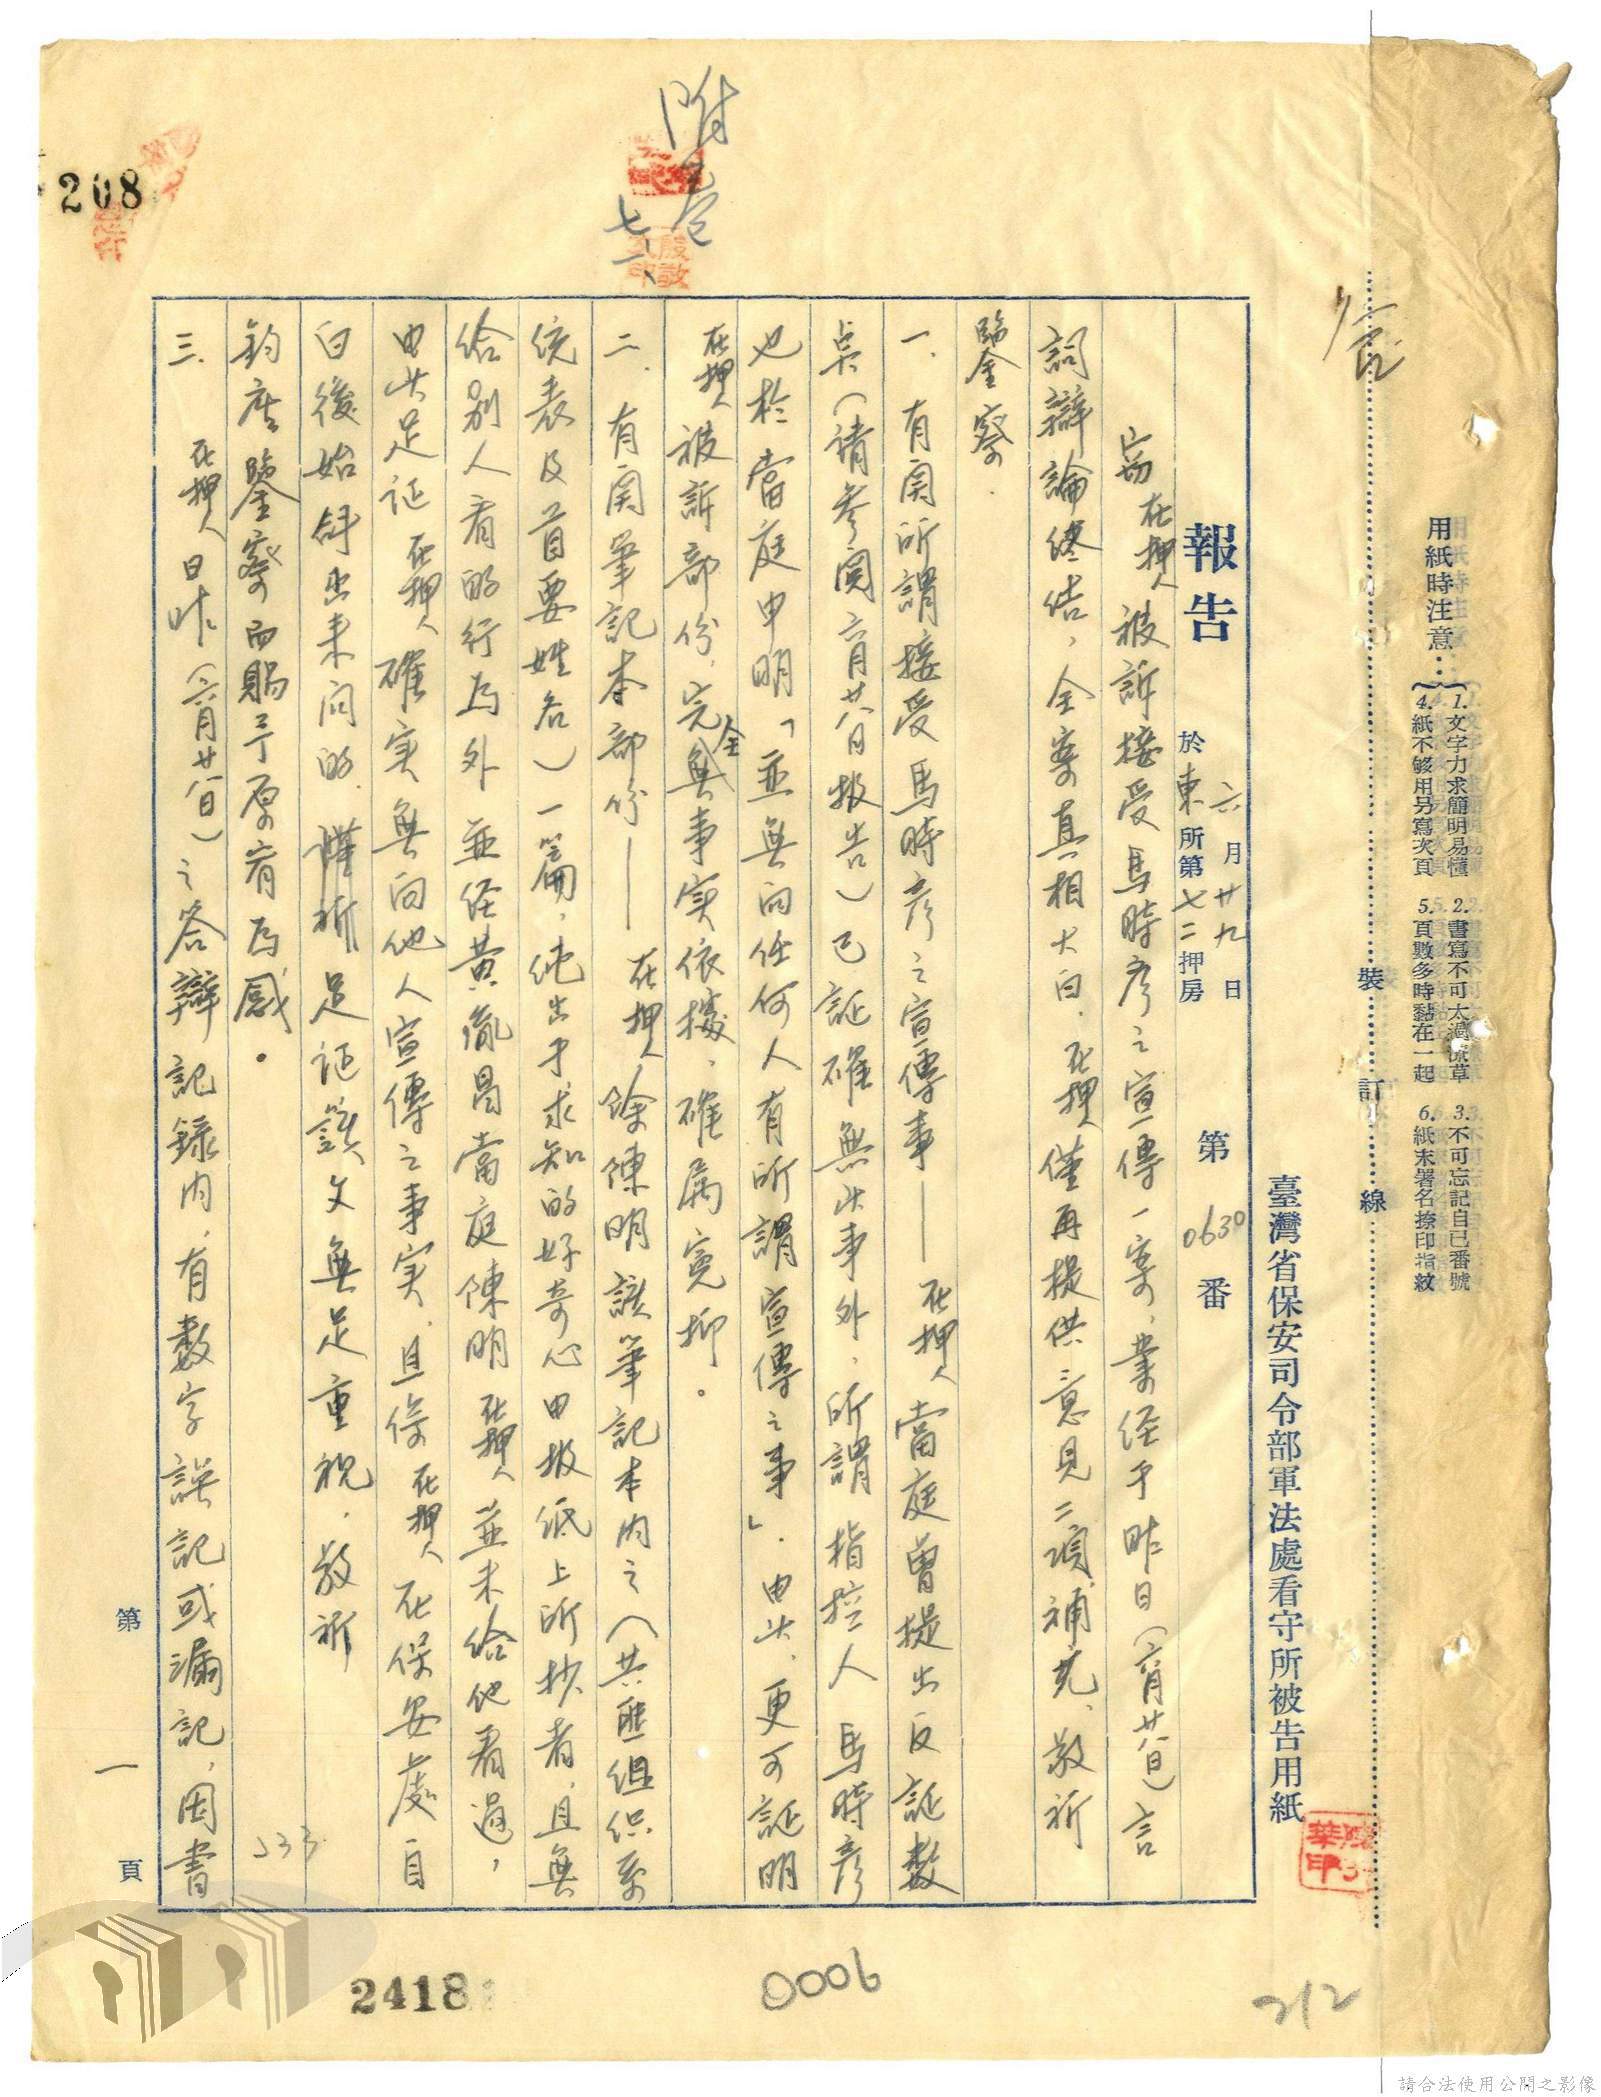 用紙時注意：
1.文字力求簡明易懂 2.書寫不可太過潦草 3.不可忘記自己番號
4.紙不够用另寫次頁 5.頁數多時黏在一起 6.紙末署名捺印指紋
裝 訂 線
臺灣省保安司令部軍法處看守所被告用紙
報告 六月廿九日 於東所第七二押房 第0630番
竊在押人被訴接受馬時彥之宣傳一案，業經于昨日（六月廿八日）言
詞辯論終結，全案真相大白。在押人僅再提供意見二項補充，敬祈
鑒察。
一、有関所謂接受馬時彥之宣傳事——在押人當庭曾提出反証数
点（请参閱六月廿八日报告）已証確無此事外，所謂指控人馬時彥
也於當庭申明「並無向任何人有所謂宣傳之事」，由此，更可証明
在押人被訴部份，完全無事实依據，確属寃抑。
二、有関筆記本部份——在押人除陳明該筆記本内之（共匪組织系
统表及首要姓名）一篇，純出于求知的好奇心由报纸上所抄者，且無
给别人看的行為外，並经黄胤昌當庭陳明在押人並未给他看過，
由此足证在押人確实無向他人宣傳之事实，且係在押人在保安處自
白後始斜出来问的，謹祈足证該文無足重視，敬祈
鈞座鑒察而賜予原宥為感。
三、在押人日昨（六月廿八日）之答辯記録内，有数字誤記或漏記，因書
第 一 頁
附卷
七、一、
208
533
2418
0006
212
請合法使用公開之影像